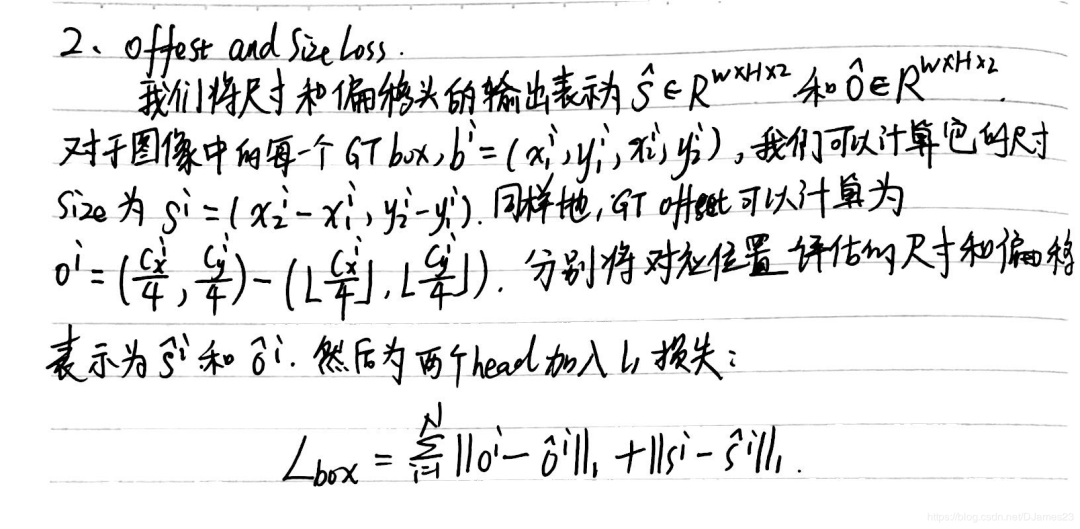 2、offest and Size Loss.
我们将尺寸和偏移头的输出表示为 ŝ∈R^{W×H×2} 和 ô∈R^{W×H×2}.
对于图像中的每一个 GT box, b^i = (x_1^i, y_1^i, x_2^i, y_2^i), 我们可以计算它的尺寸
Size 为 s^i = (x_2^i - x_1^i, y_2^i - y_1^i). 同样地, GT offset 可以计算为
o^i = (\frac{c_x^i}{4}, \frac{c_y^i}{4}) - (⌊\frac{c_x^i}{4}⌋, ⌊\frac{c_y^i}{4}⌋). 分别将对应位置评估的尺寸和偏移
表示为 ŝ^i 和 ô^i. 然后为两个head加入 l_1 损失:
L_{box} = \sum_{i=1}^{N} ||o^i - ô^i||_1 + ||s^i - ŝ^i||_1.
https://blog.csdn.net/DJames23